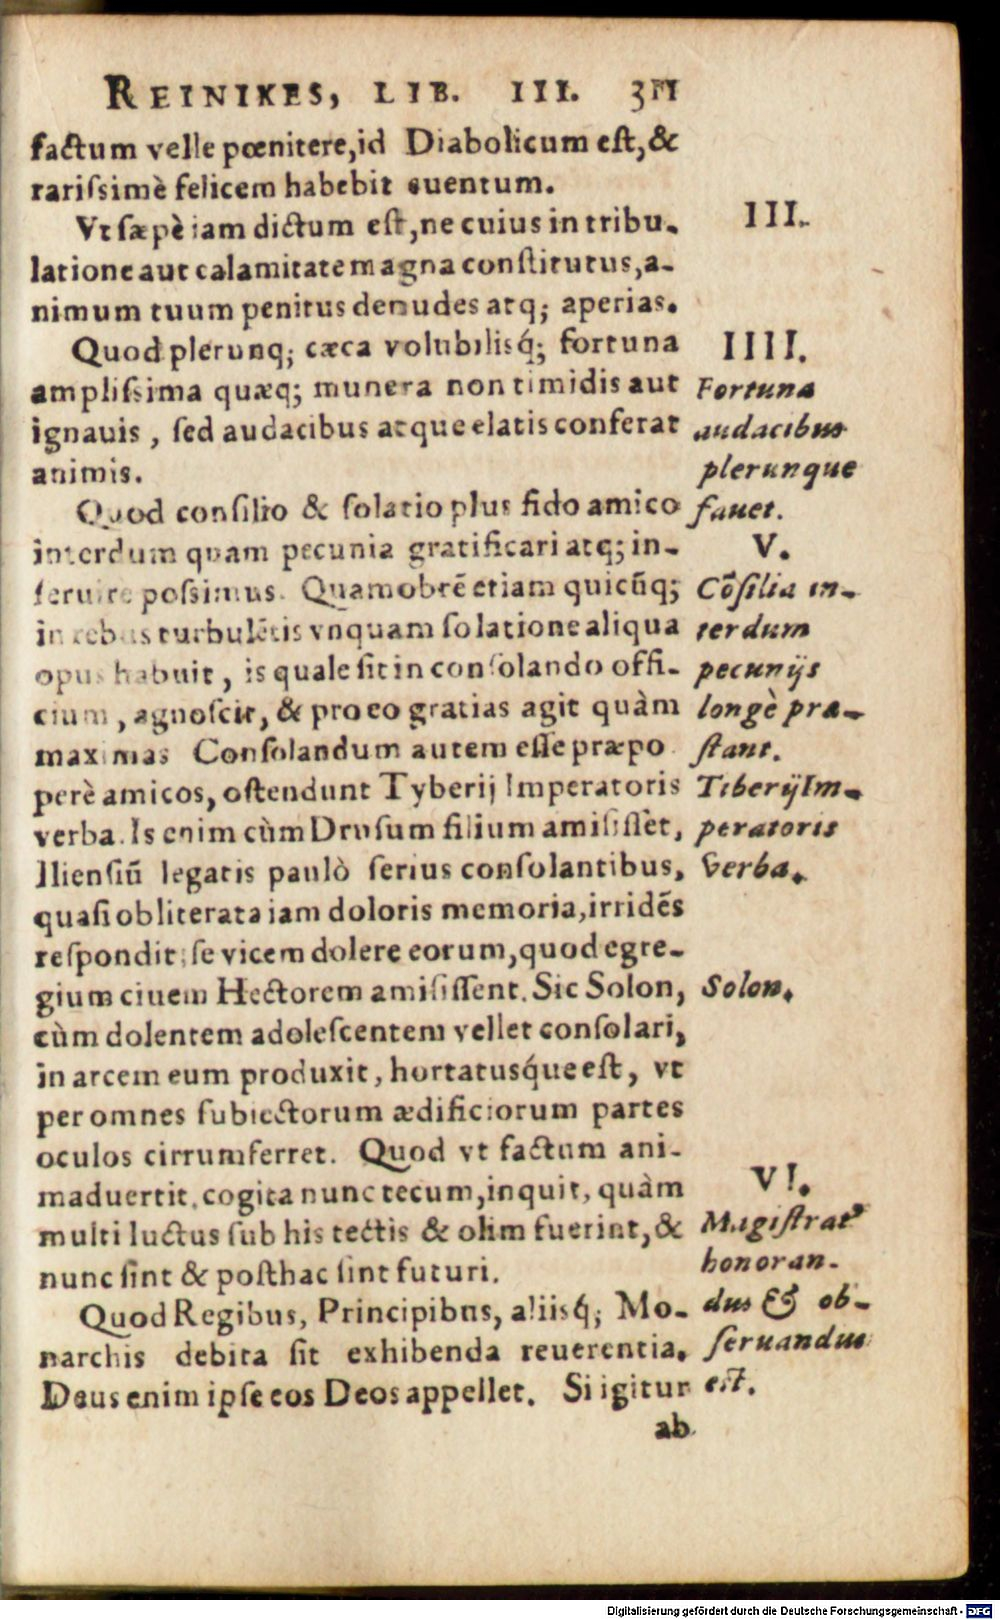 REINIKES, LIB. III. 311
factum velle pœnitere, id Diabolicum eſt, &
rariſsimè felicem habebit euentum.
Vt ſæpè iam dictum eſt, ne cuius in tribu-
latione aut calamitate magna conſtitutus, a-
nimum tuum penitus denudes atq; aperias.
III.
Quod plerunq; cæca volubilisq́; fortuna
ampliſsima quæq; munera non timidis aut
ignauis, ſed audacibus atque elatis conferat
animis.
IIII.
Fortuna
audacibus
plerunque
fauet.
Quod conſilio & ſolatio plus fido amico
interdum quam pecunia gratificari atq; in-
ſeruire poſsimus. Quamobrē etiam quicūq;
in rebus turbulētis vnquam ſolatione aliqua
opus habuit, is quale ſit in conſolando offi-
cium, agnoſcit, & pro eo gratias agit quàm
maximas Conſolandum autem eſſe præpo
perè amicos, oſtendunt Tyberij Imperatoris
verba. Is enim cùm Druſum filium amiſiſſet,
Ilienſiū legatis paulò ſerius conſolantibus,
quaſi obliterata iam doloris memoria, irridēs
reſpondit: ſe vicem dolere eorum, quod egre-
gium ciuem Hectorem amiſiſſent. Sic Solon,
cùm dolentem adoleſcentem vellet conſolari,
in arcem eum produxit, hortatusq́ue eſt, vt
per omnes ſubiectorum ædificiorum partes
oculos cirrumferret. Quod vt factum ani-
maduertit, cogita nunc tecum, inquit, quàm
multi luctus ſub his tectis & olim fuerint, &
nunc ſint & poſthac ſint futuri.
V.
Cōſilia in-
terdum
pecunijs
longè præ-
ſtant.
Tiberij Im-
peratoris
verba.
Solon.
Quod Regibus, Principibus, aliisq́; Mo-
narchis debita ſit exhibenda reuerentia.
Deus enim ipſe eos Deos appellet. Si igitur
VI.
Magiſtratꝰ
honoran-
dus & ob-
ſeruandus
eſt.
ab
Digitalisierung gefördert durch die Deutsche Forschungsgemeinschaft - DFG